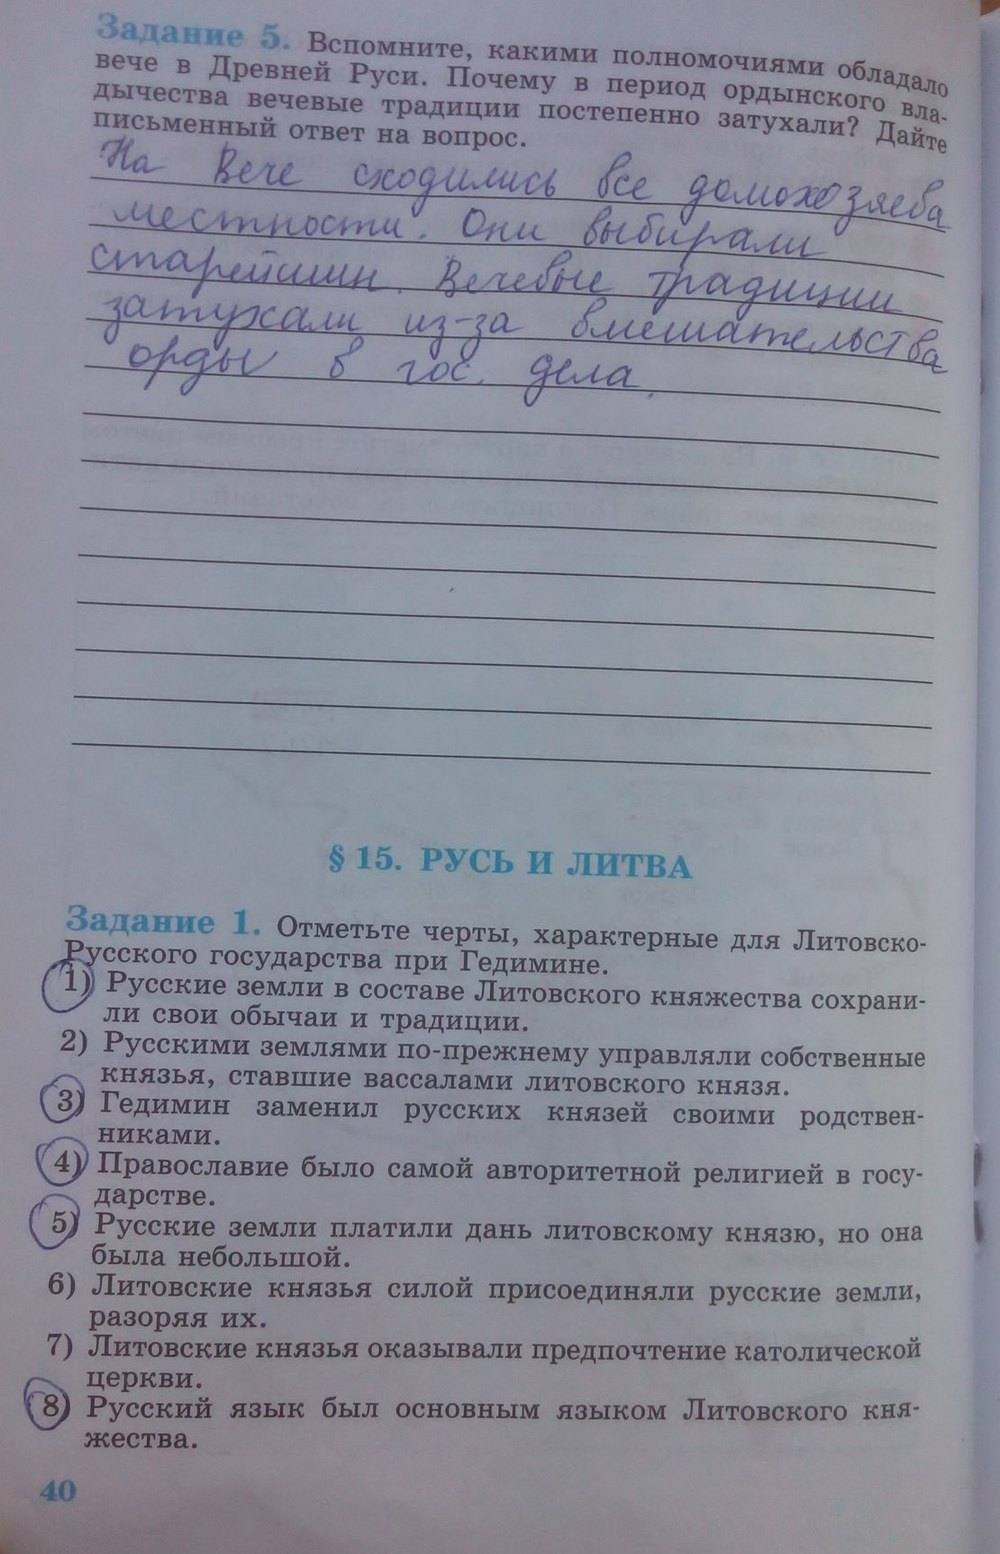 Задание 5. Вспомните, какими полномочиями обладало
вече в Древней Руси. Почему в период ордынского вла-
дычества вечевые традиции постепенно затухали? Дайте
письменный ответ на вопрос.
На Вече сходились все домохозяева
местности. Они выбирали
старейшин. Вечевые традиции
затухали из-за вмешательства
орды в гос. дела.
§ 15. РУСЬ И ЛИТВА
Задание 1. Отметьте черты, характерные для Литовско-
Русского государства при Гедимине.
1) Русские земли в составе Литовского княжества сохрани-
ли свои обычаи и традиции.
2) Русскими землями по-прежнему управляли собственные
князья, ставшие вассалами литовского князя.
3) Гедимин заменил русских князей своими родствен-
никами.
4) Православие было самой авторитетной религией в госу-
дарстве.
5) Русские земли платили дань литовскому князю, но она
была небольшой.
6) Литовские князья силой присоединяли русские земли,
разоряя их.
7) Литовские князья оказывали предпочтение католической
церкви.
8) Русский язык был основным языком Литовского кня-
жества.
40